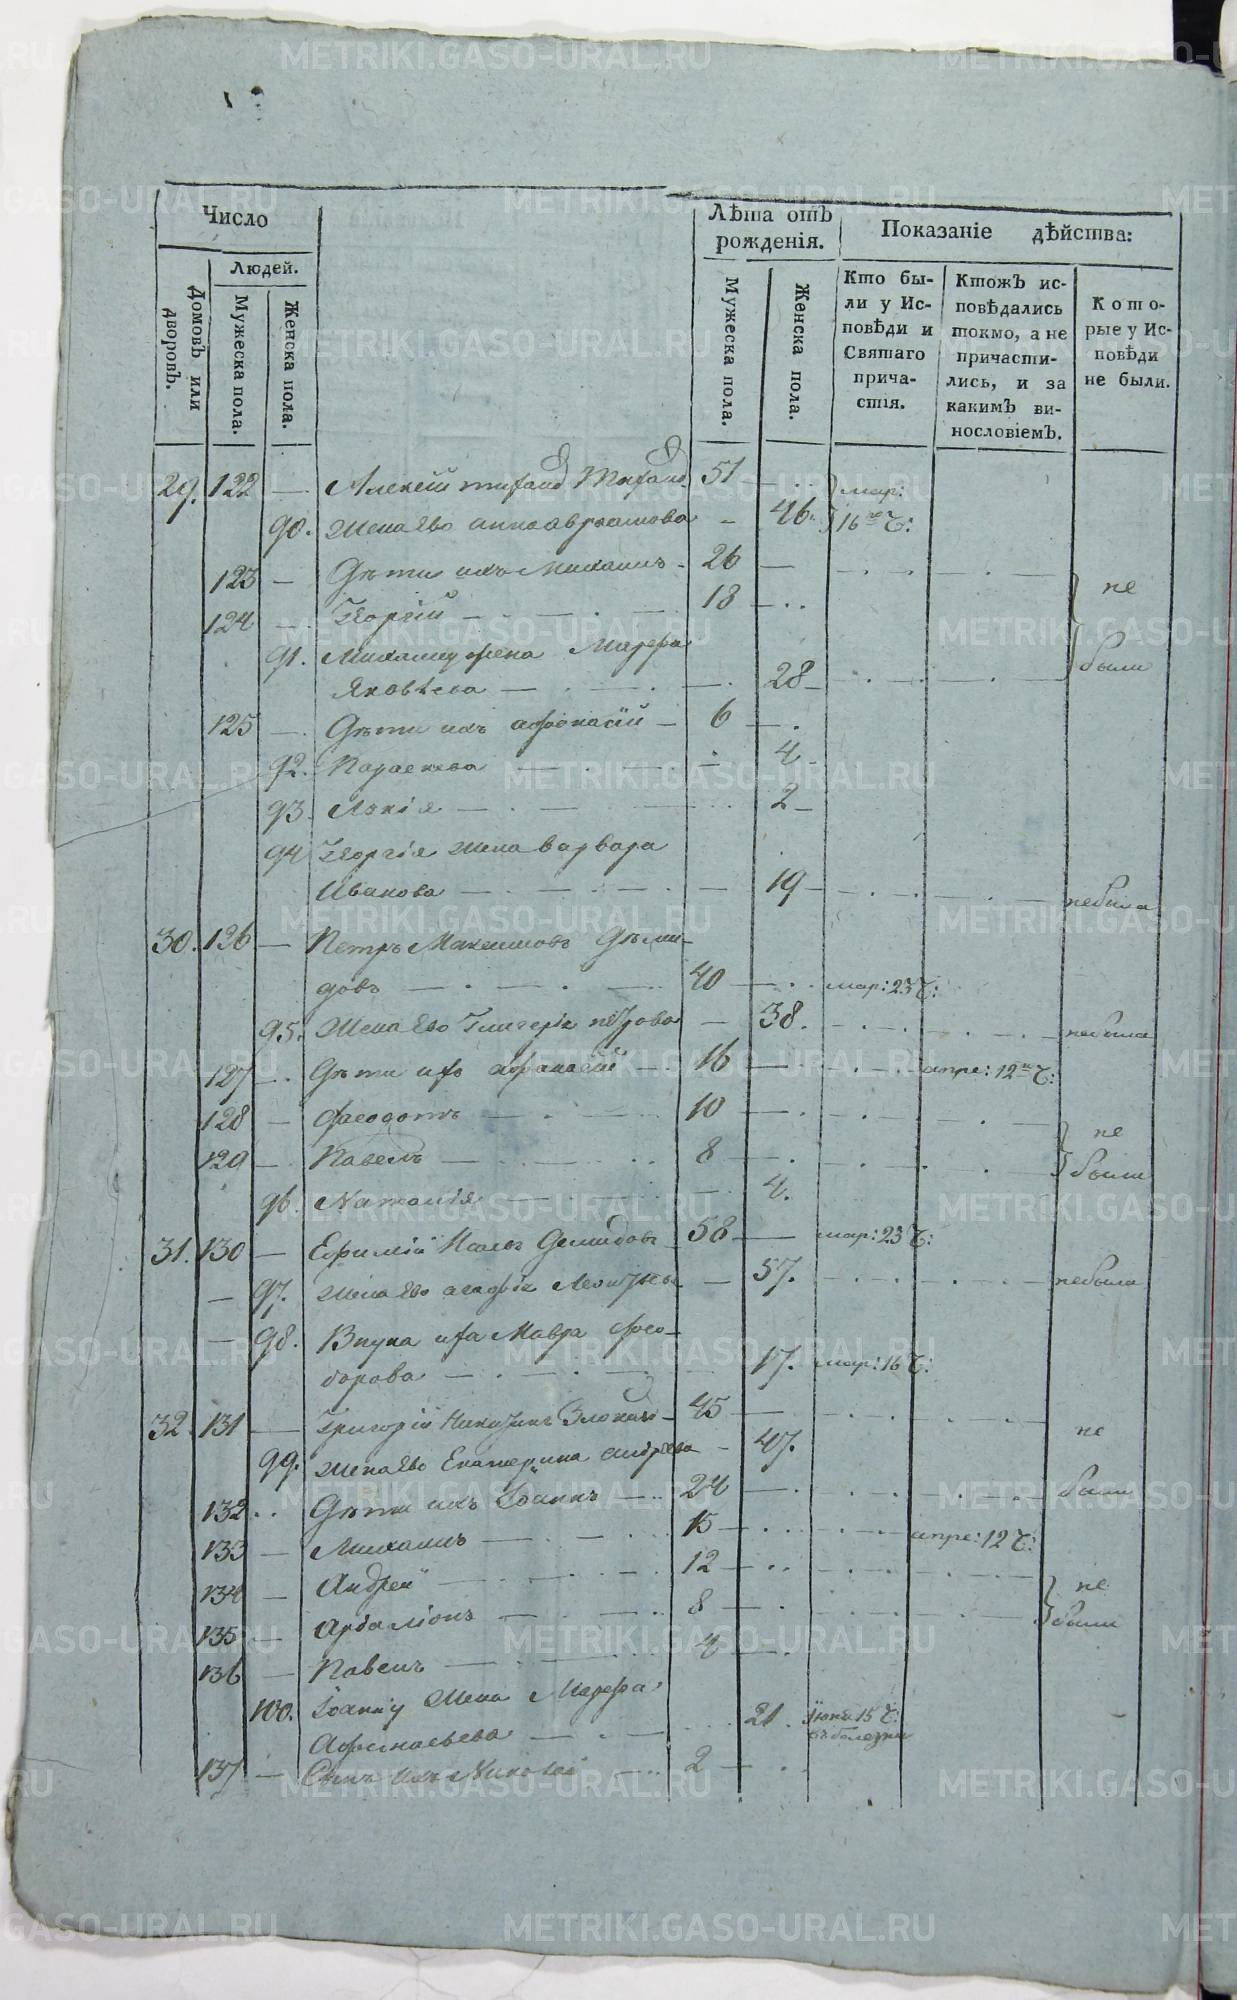 Число
Людей.
Домовъ или дворовъ.
Мужеска пола.
Женска пола.
Лѣта отъ рожденія.
Мужеска пола.
Женска пола.
Показаніе дѣйства:
Кто были у Исповѣди и Святаго причастія.
Ктожъ исповѣдались токмо, а не причастились, и за какимъ винословіемъ.
Которые у Исповѣди не были.
29. 122 — Алексій 51 — мар:
90. жена его анна авраамова — 46. 16 го Ч:
123 — Дѣти ихъ Михаилъ — 26 — не
124 — Георгій — 18 —
91. Михаилу жена Марфа
Яковлева — 28 — были
125 — Дѣти ихъ афонасій — 6 —
92. Параскева — 4
93. — 2 —
94 Георгія жена варвара
Иванова — 19 — небыла
30. 126 — Петръ Максимовъ Деми-
довъ — 40 — мар: 23 Ч:
95. Жена его Гликерія петрова — 38. небыла
127 — Дѣти ихъ афанасій — 16 — апре: 12 Ч:
128 — Феодотъ — 10 — не
129 — Павелъ — 8 — были
96. Наталія — 4.
31. 130 — Ефимій Демидовъ — 58 — мар: 23 Ч:
— 97. жена его — 57. небыла
— 98. Внука ихъ Мавра Фео-
дорова — 17. мар: 16 Ч:
32. 131 — Григорій 45 — не
99. жена его Екатерина андреева — 47.
132 .. Дѣти ихъ Іоаннъ — 24 — были
133 — Михаилъ — 15 — апре: 12 Ч:
134 — Андрей — 12 — не
135 — Ардаліонъ — 8 — были
136 — Павелъ — 4 —
100. Іоанну жена Марфа
Афонасьева — 21. Іюня 15 Ч: въ болезни
137 — Сынъ ихъ Николай — 2 —
METRIKI.GASO-URAL.RU